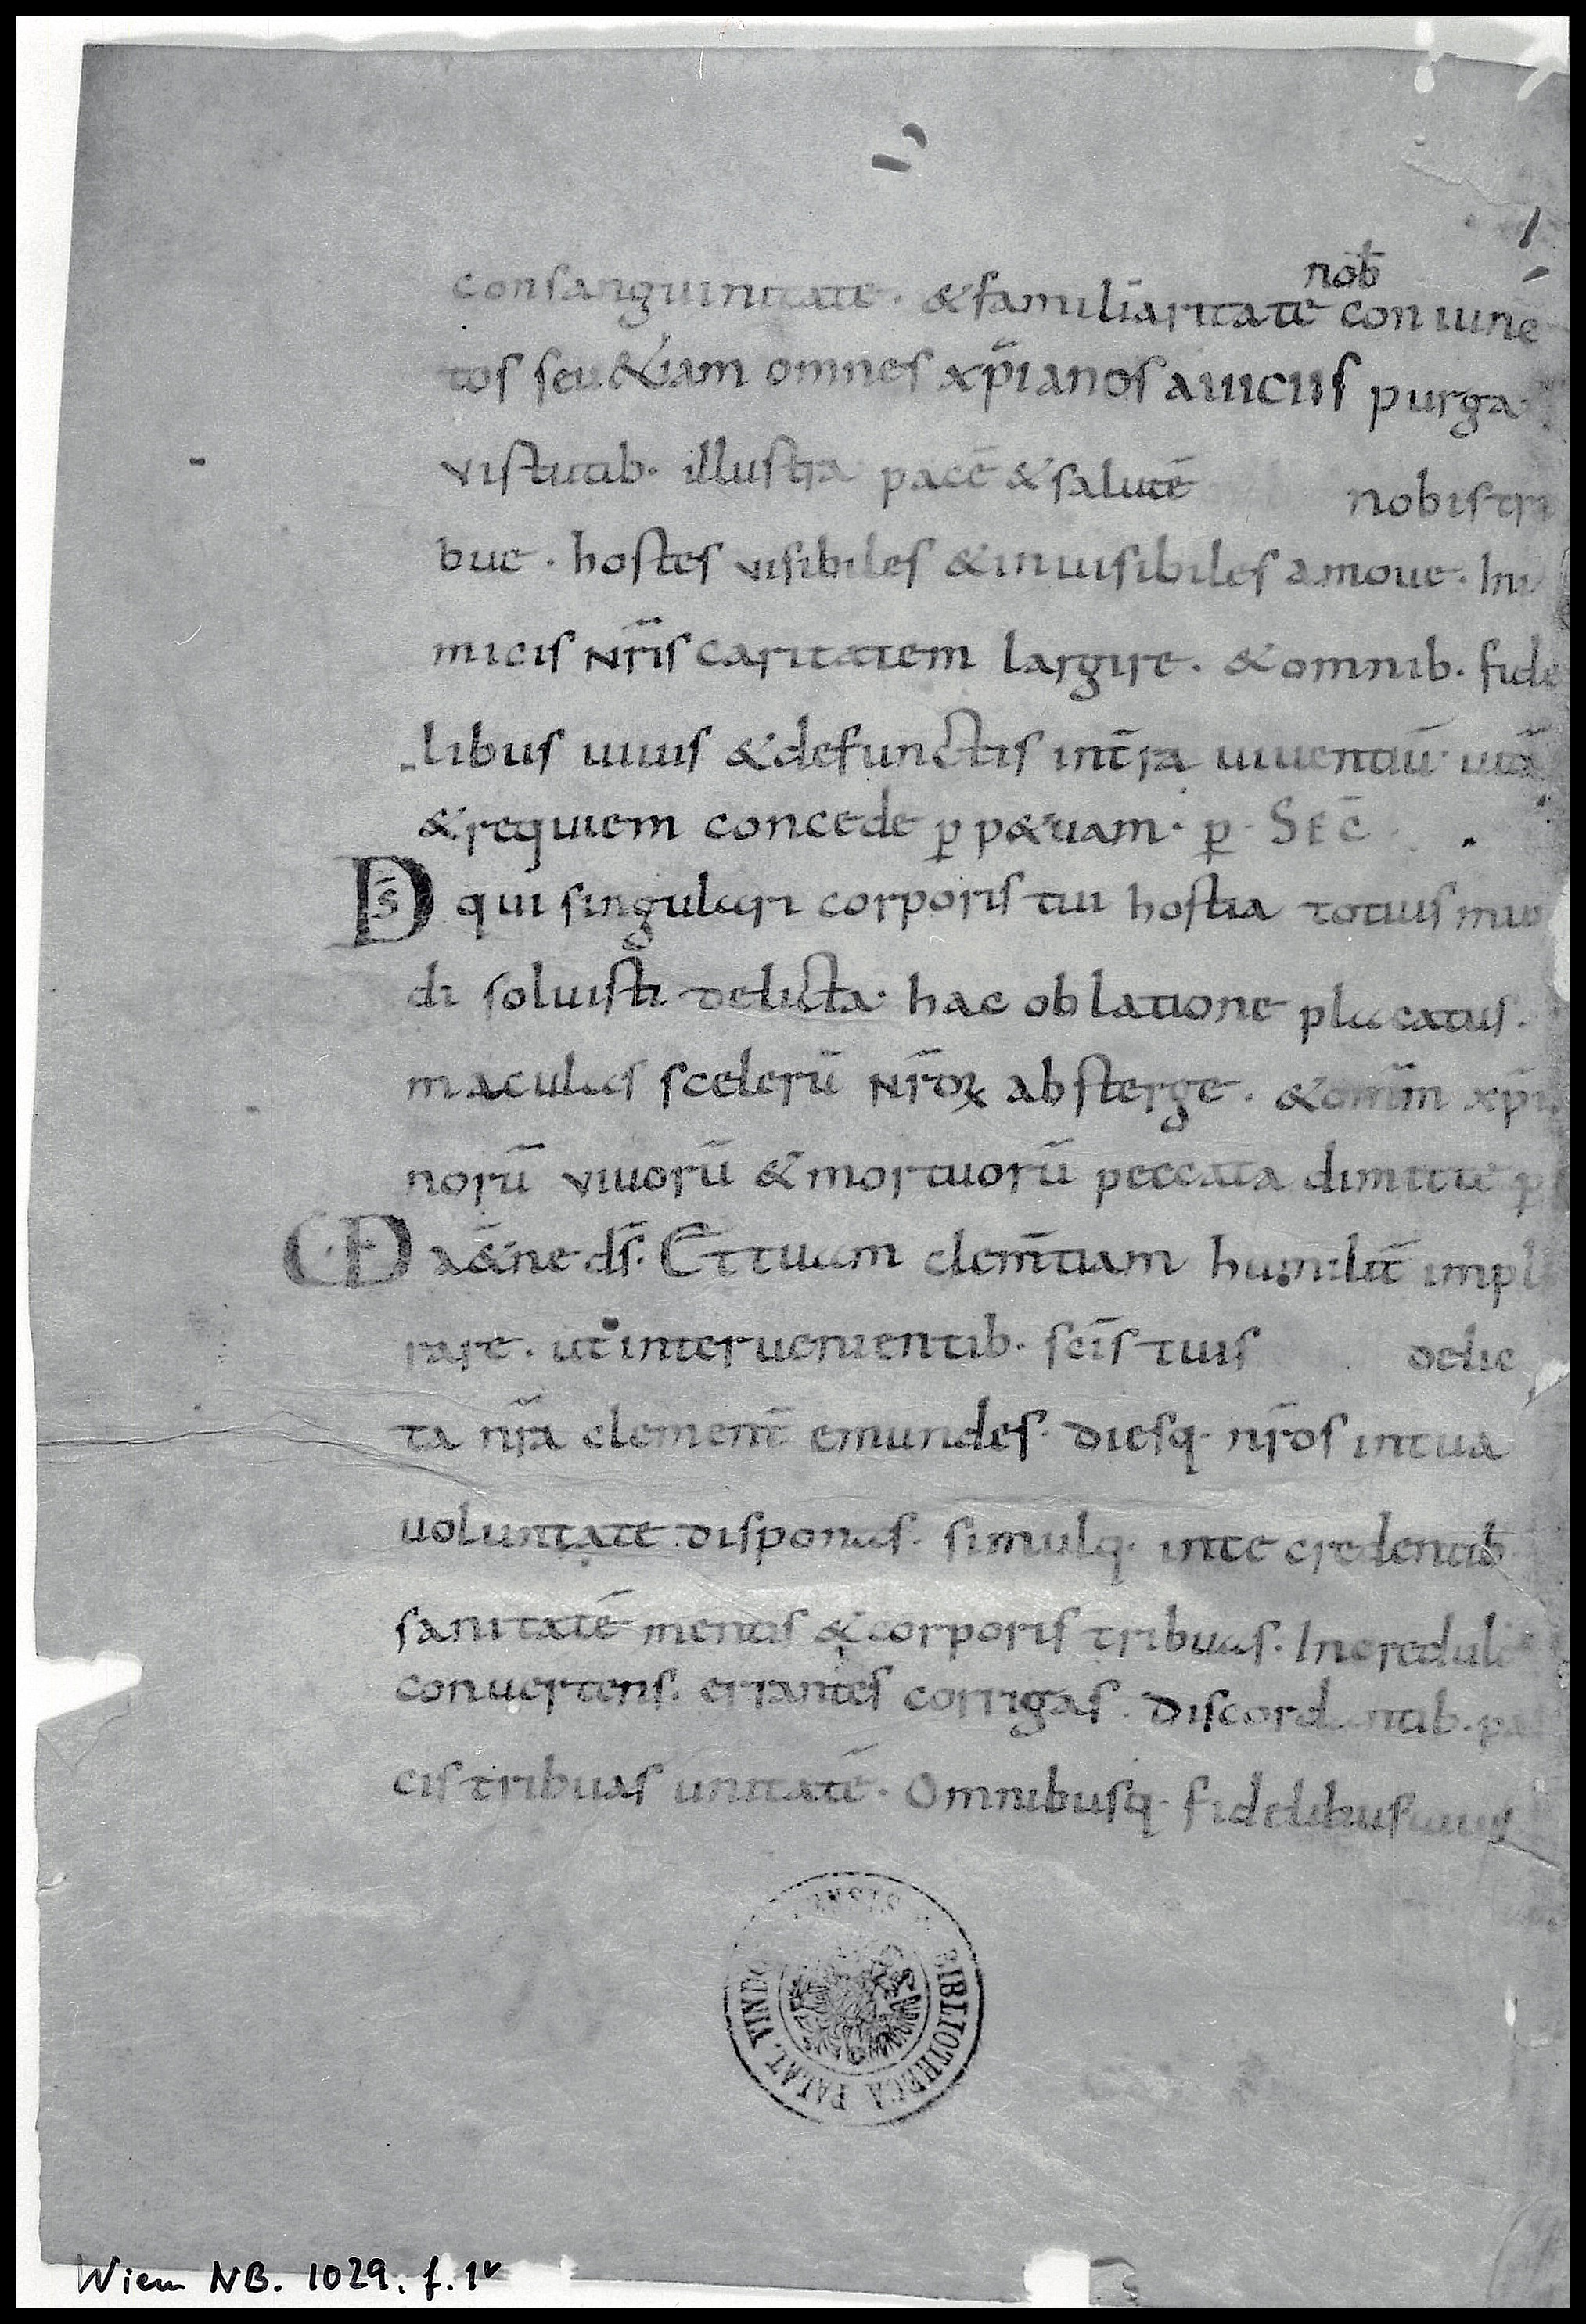 nob̄
consanguinitate. & familiaritatē coniunc
tos seu &iam omnes xp̄ianos auiciis purga.
virtutib. illustra pacē & salutē nobis tri
bue. hostes visibiles & inuisibiles amoue. Ini
micis nr̄is caritatem largire. & omnib. fide
libus uiuis & defunctis int̄ra uiuentiū uitā
& requiem concede p̄ p&uam. p̄. SEC̄
Ds̄ qui singulari corporis tui hostia totius mun
di soluisti delicta. hac oblatione placatus.
maculas scelerū nr̄oꝝ absterge. & om̄m xp̄ia
norū vivorū & mortuorū peccata dimitte p̄
UD a&̄ne ds̄. Et tuam clem̄tiam humilit̄ implo
rare. ut interuenientib. sc̄is tuis delic
ta nr̄a clement̄ emundes. diesq. nr̄os in tua
uoluntate disponas. simulq. in te credentib̄
sanitatē mentis & corporis tribuas. Incredulos
conuertens. errantes corrigas. Discordantib. pa
cis tribuas unitatē. Omnibusq. fidelibus uiuis
BIBLIOTHECA PALAT. VINDOBONENSIS
Wien NB. 1029, f. 1v